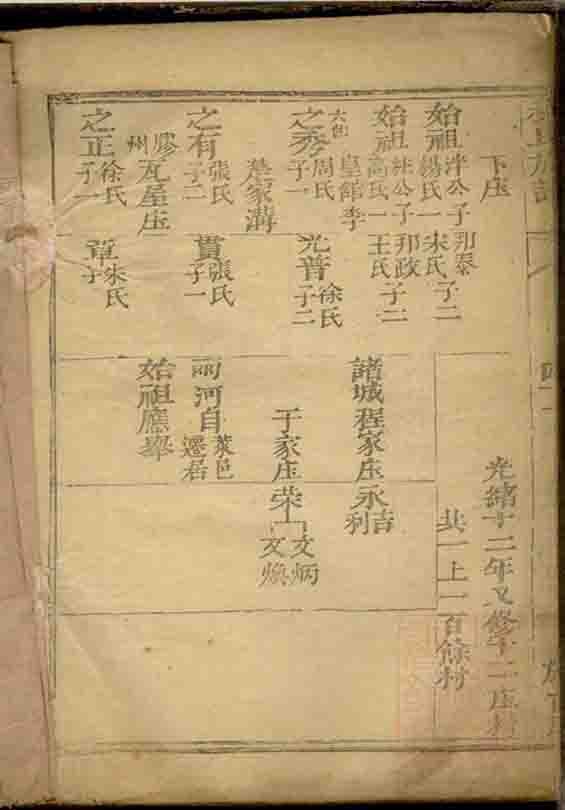 下庄
始祖泮公子
楊氏一
邦泰
宋氏子二
始祖
高氏一
邦政
王氏子二
之秀
周氏
子一
光普
徐氏
子二
之有
張氏
子二
貫
張氏
子一
膠州
瓦屋庄
之正
徐氏
子一
章
宋氏
子一
光緒十二年又修十二庄村
共一上一百餘村
諸城程家庄永吉
利
于家庄榮
文炳
文煥
兩河自萊邑
遷居
始祖應舉